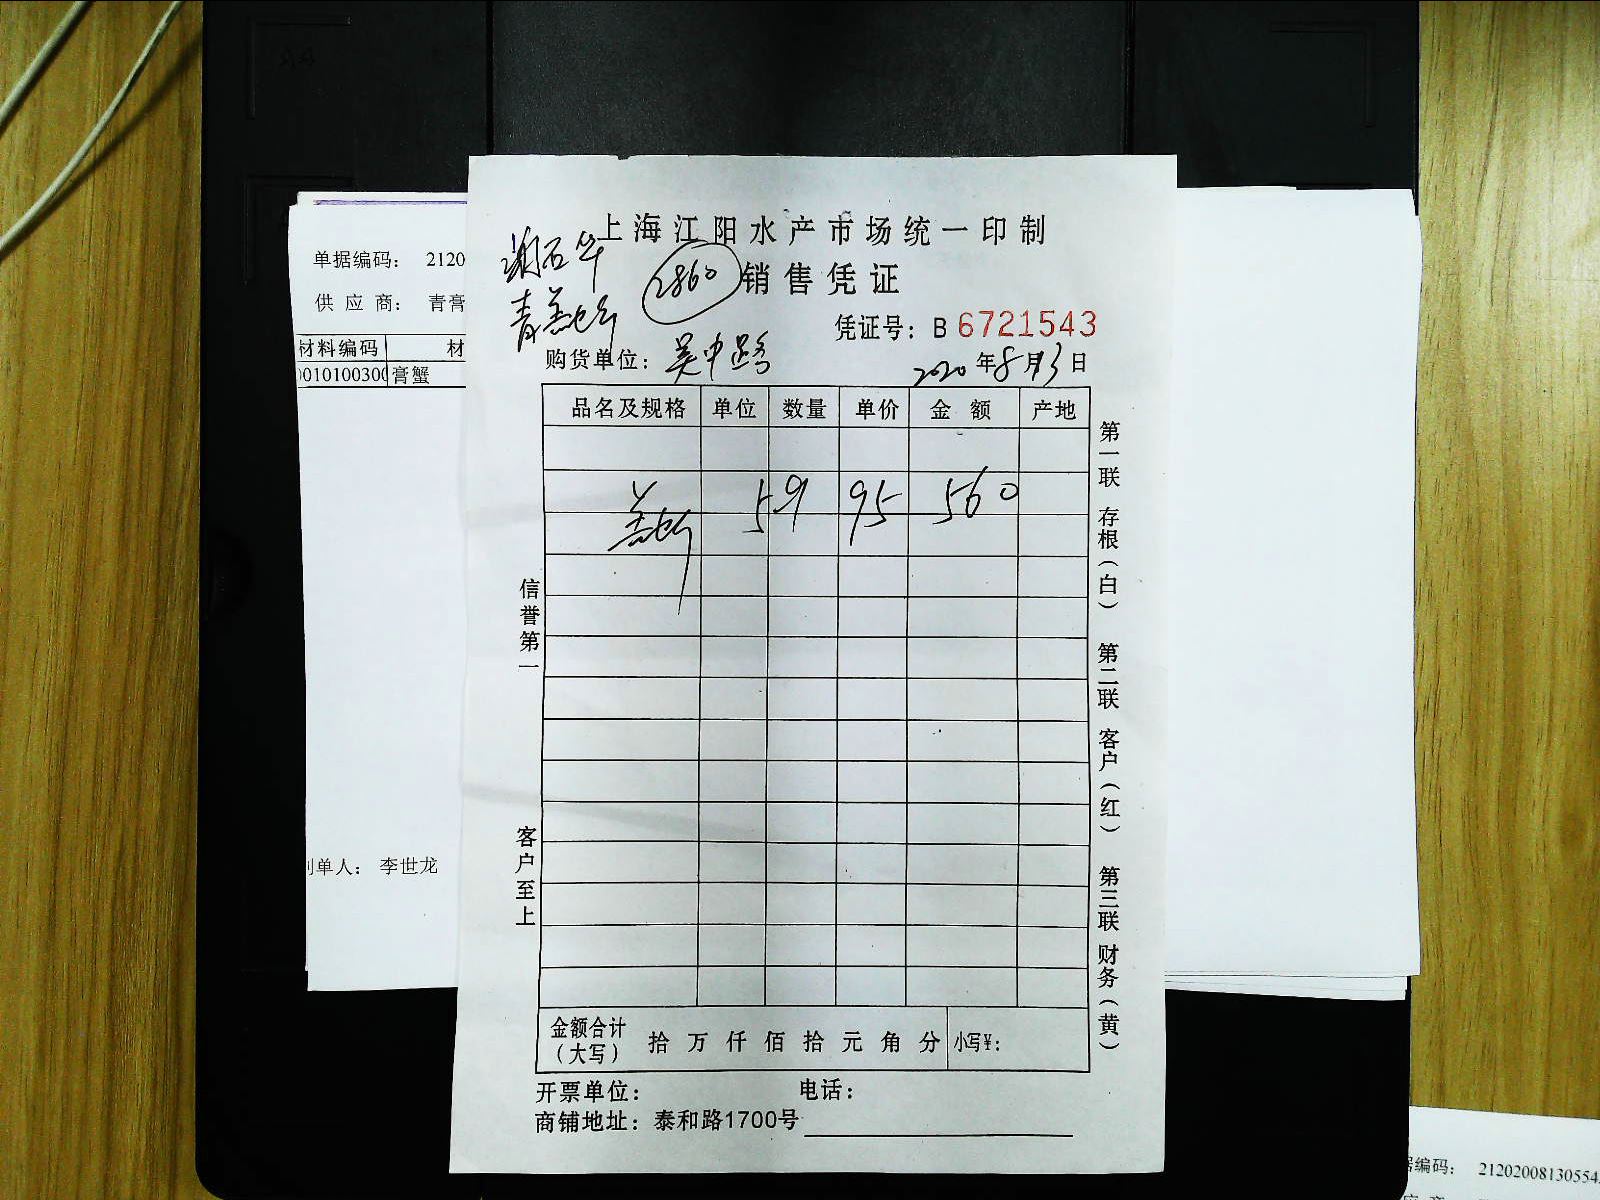 上海江阳水产市场统一印制
2860
销售凭证
凭证号：B 6721543
购货单位：吴中路
2020年8月13日
品名及规格 单位 数量 单价 金额 产地
59 95 560
信誉第一
客户至上
第一联 存根（白） 第二联 客户（红） 第三联 财务（黄）
金额合计（大写） 拾 万 仟 佰 拾 元 角 分 小写¥：
开票单位： 电话：
商铺地址：泰和路1700号
单据编码： 2120
供 应 商： 青膏
材料编码 材
010100300 膏蟹
制单人： 李世龙
据编码： 2120200813055